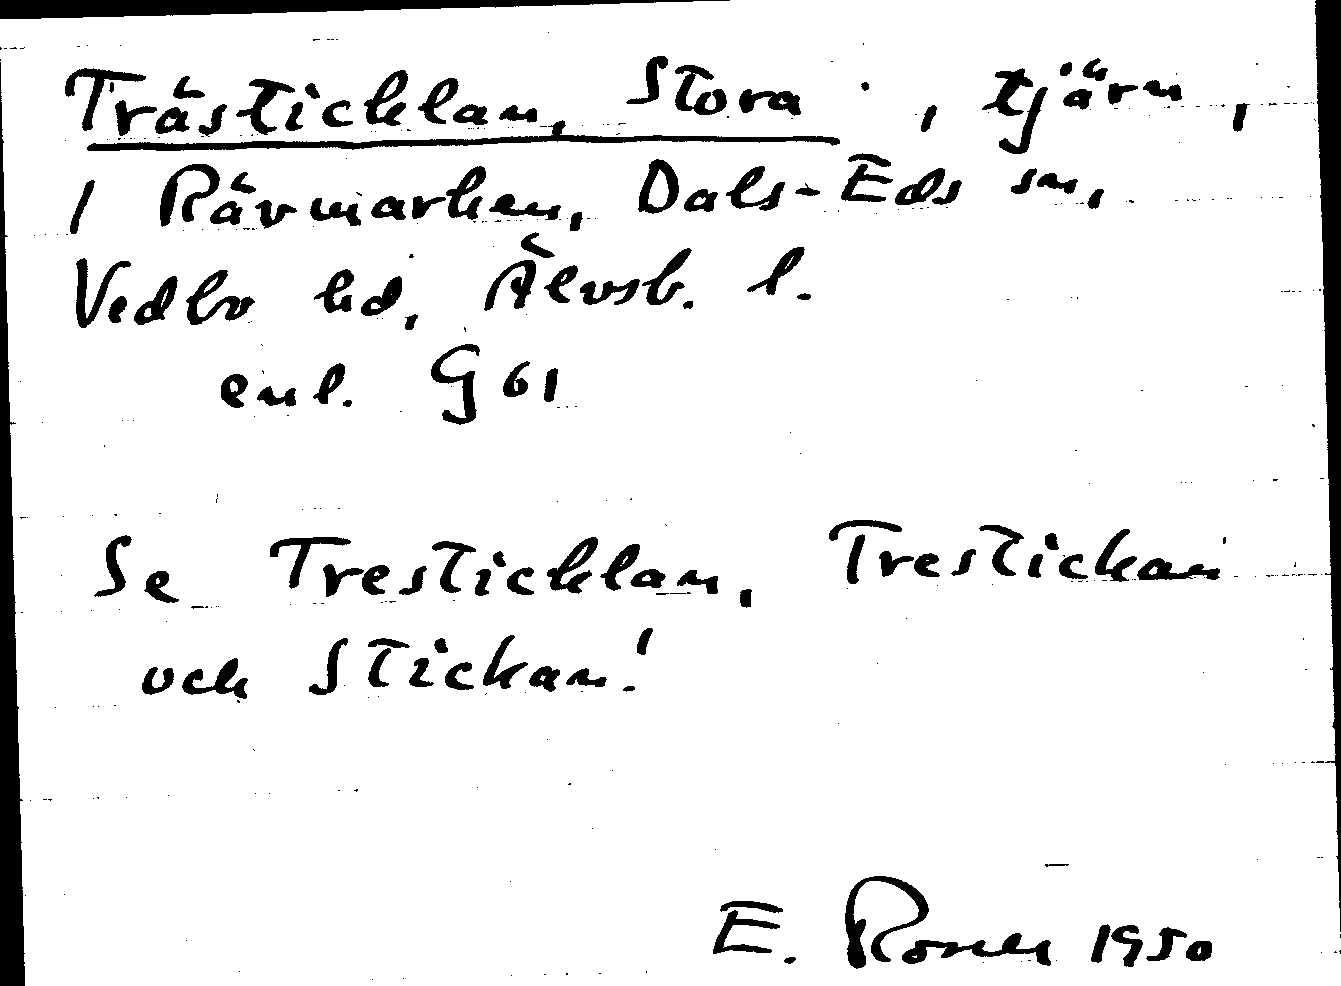 Trästicklan, Stora, tjärn,
i Rävmarken, Dals-Eds sn,
Vedbo hd, Älvsb. l.
enl. G 61
Se Tresticklan, Trestickan
och Stickan!
E. Rosell 1950